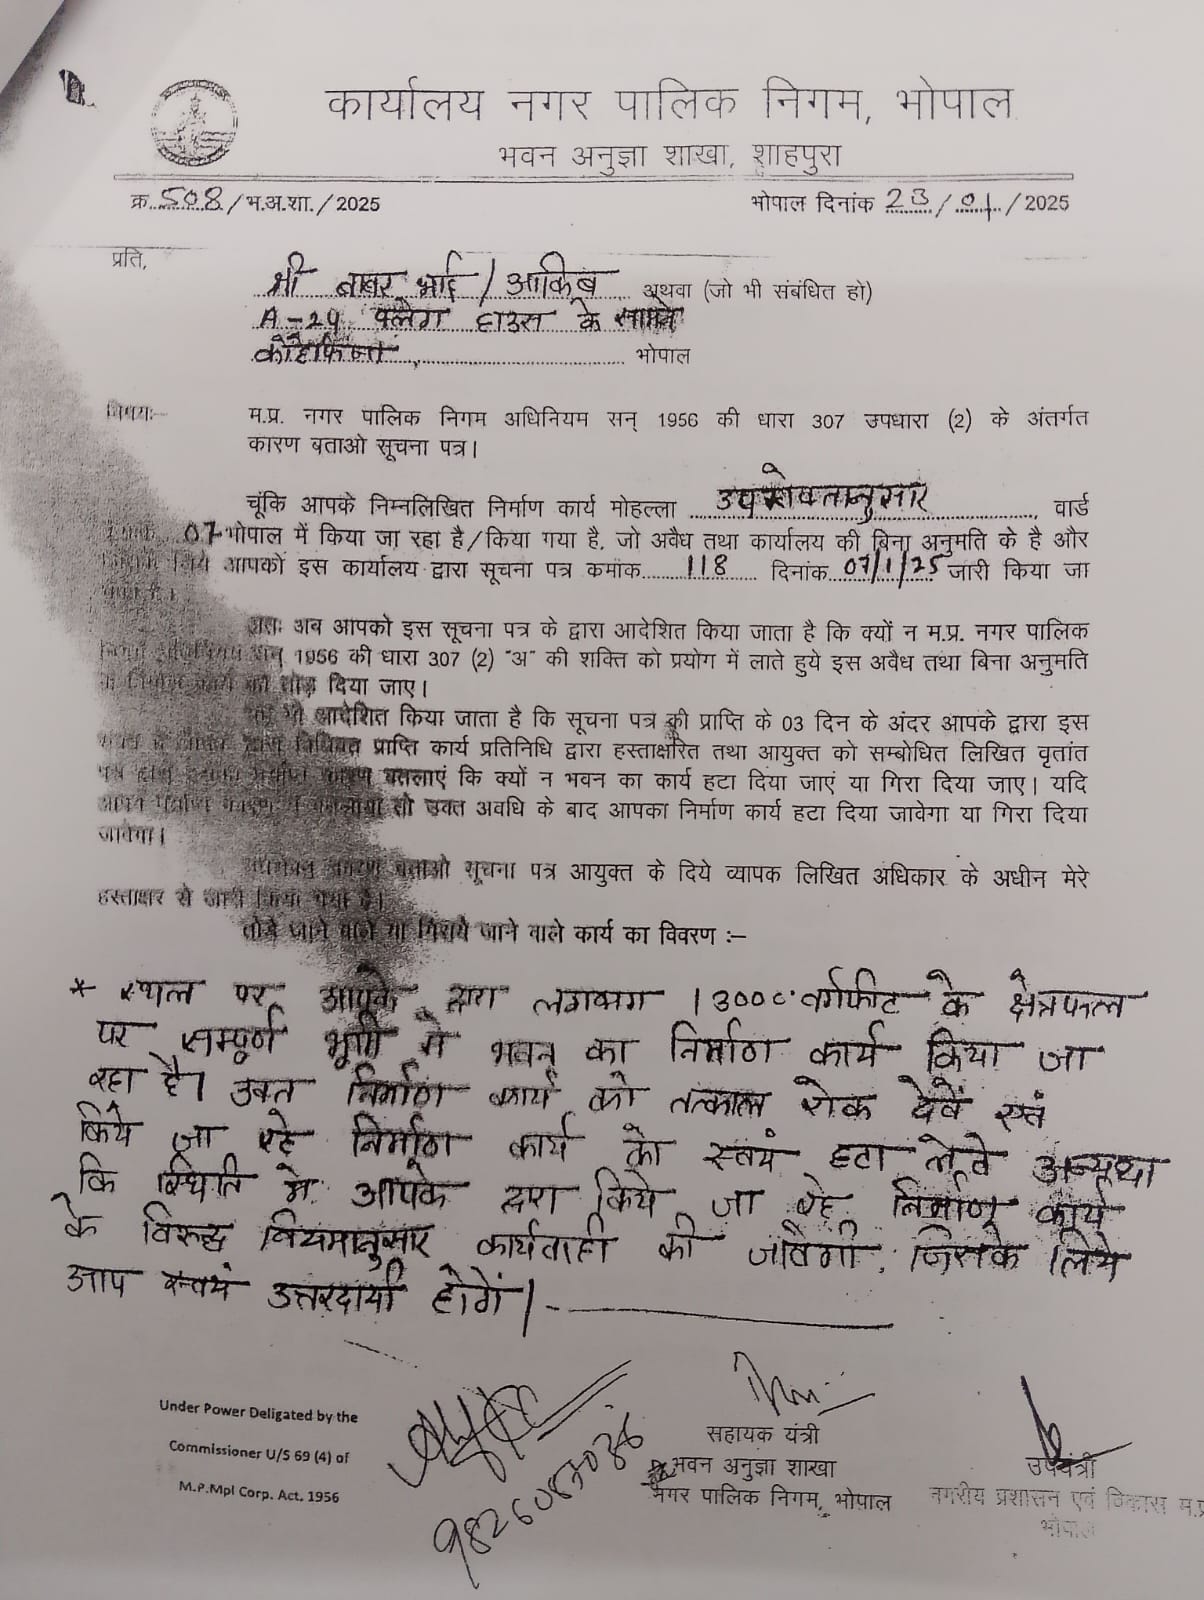 कार्यालय नगर पालिक निगम, भोपाल
भवन अनुज्ञा शाखा, शाहपुरा
क्र. 508 /भ.अ.शा./2025 भोपाल दिनांक 23/01/2025
प्रति,
श्री बाबर भाई/आकिब अथवा (जो भी संबंधित हो)
A-24 फ्लैग हाउस के सामने
कोहेफिजा, भोपाल
विषय:- म.प्र. नगर पालिक निगम अधिनियम सन् 1956 की धारा 307 उपधारा (2) के अंतर्गत
कारण बताओ सूचना पत्र।
चूंकि आपके निम्नलिखित निर्माण कार्य मोहल्ला उपरोक्तानुसार वार्ड
07 भोपाल में किया जा रहा है/किया गया है, जो अवैध तथा कार्यालय की बिना अनुमति के है और
आपको इस कार्यालय द्वारा सूचना पत्र कमांक 118 दिनांक 07/1/25 जारी किया जा
अतः अब आपको इस सूचना पत्र के द्वारा आदेशित किया जाता है कि क्यों न म.प्र. नगर पालिक
सन् 1956 की धारा 307 (2) "अ" की शक्ति को प्रयोग में लाते हुये इस अवैध तथा बिना अनुमति
तोड़ दिया जाए।
आदेशित किया जाता है कि सूचना पत्र की प्राप्ति के 03 दिन के अंदर आपके द्वारा इस
प्राप्ति कार्य प्रतिनिधि द्वारा हस्ताक्षरित तथा आयुक्त को सम्बोधित लिखित वृतांत
बतलाएं कि क्यों न भवन का कार्य हटा दिया जाएं या गिरा दिया जाए। यदि
तो उक्त अवधि के बाद आपका निर्माण कार्य हटा दिया जावेगा या गिरा दिया
जावेगा।
कारण बताओ सूचना पत्र आयुक्त के दिये व्यापक लिखित अधिकार के अधीन मेरे
हस्ताक्षर से जारी किया गया है।
तोड़े जाने वाले या गिराये जाने वाले कार्य का विवरण :–
* स्थल पर आपके द्वारा लगभग 13000 वर्गफीट के क्षेत्रफल
पर सम्पूर्ण भूमि में भवन का निर्माण कार्य किया जा
रहा है। उक्त निर्माण कार्य को तत्काल रोक देवें एवं
किये जा रहे निर्माण कार्य को स्वयं हटा लेवे अन्यथा
कि स्थिति में आपके द्वारा किये जा रहे निर्माण कार्य
के विरुद्ध नियमानुसार कार्यवाही की जावेगी, जिसके लिये
आप स्वयं उत्तरदायी होगें।
Under Power Deligated by the
Commissioner U/S 69 (4) of
M.P.Mpl Corp. Act, 1956
सहायक यंत्री
भवन अनुज्ञा शाखा
नगर पालिक निगम, भोपाल
उपयंत्री
नगरीय प्रशासन एवं विकास म.प्र
भोपाल